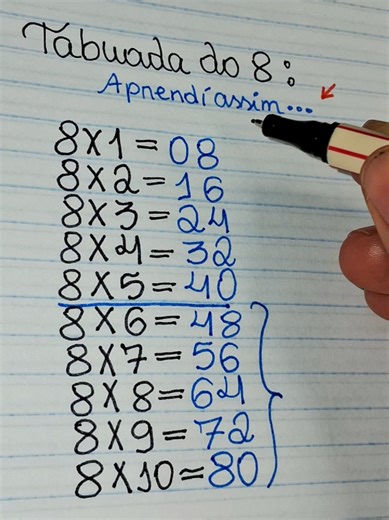 Tabuada do 8:
Aprendi assim...
8x1=08
8x2=16
8x3=24
8x4=32
8x5=40
8x6=48
8x7=56
8x8=64
8x9=72
8x10=80